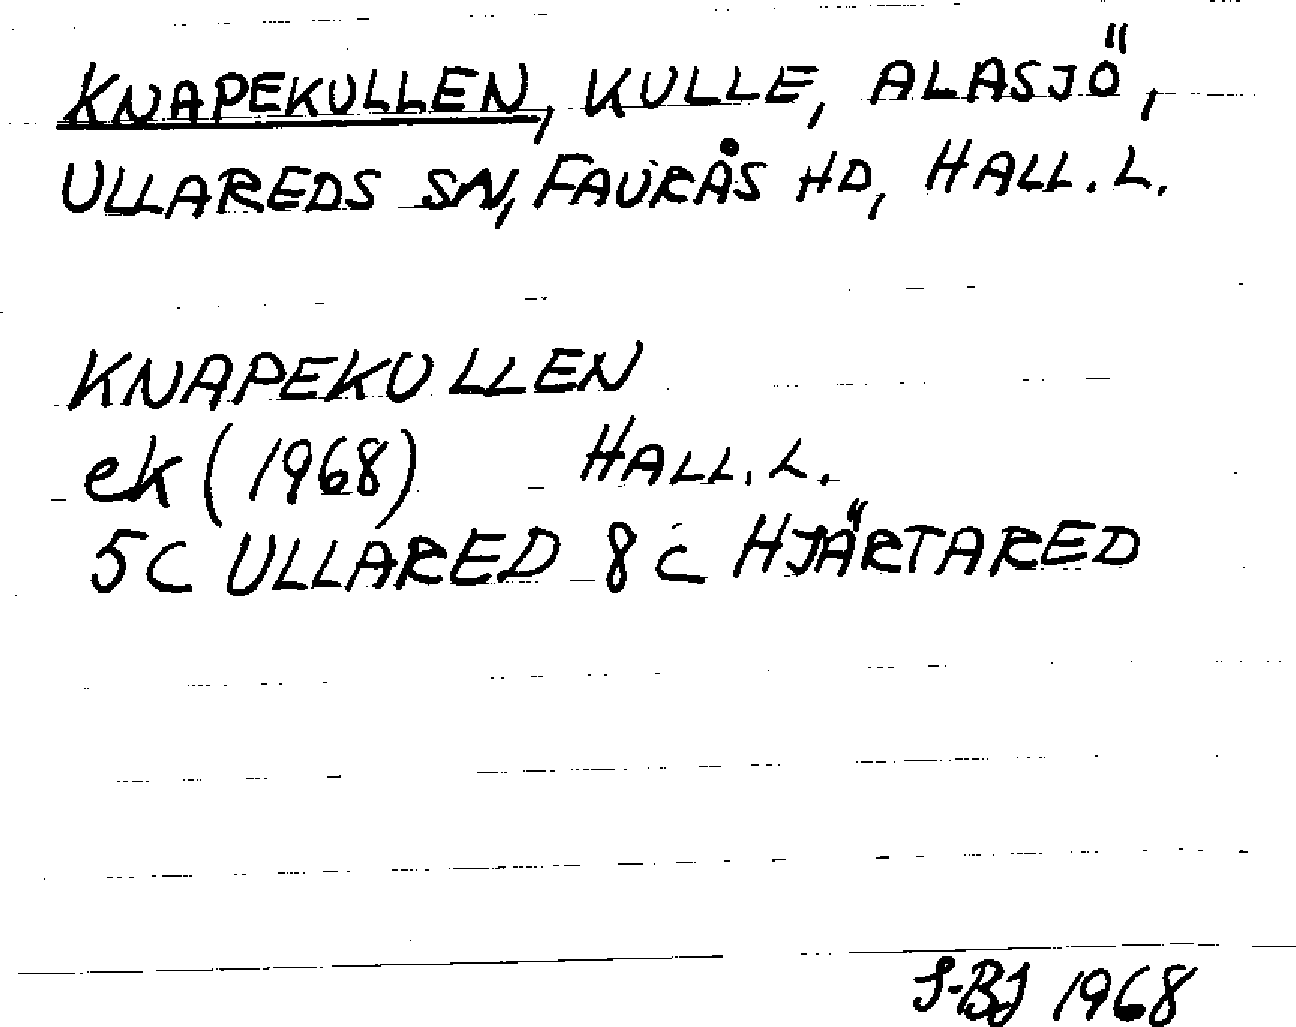 KNAPEKULLEN, KULLE, ALASJÖ,
ULLAREDS SN, FAURÅS HD, HALL. L.
KNAPEKULLEN
ek (1968) HALL. L.
5C ULLARED 8C HJÄRTARED
S-BJ 1968